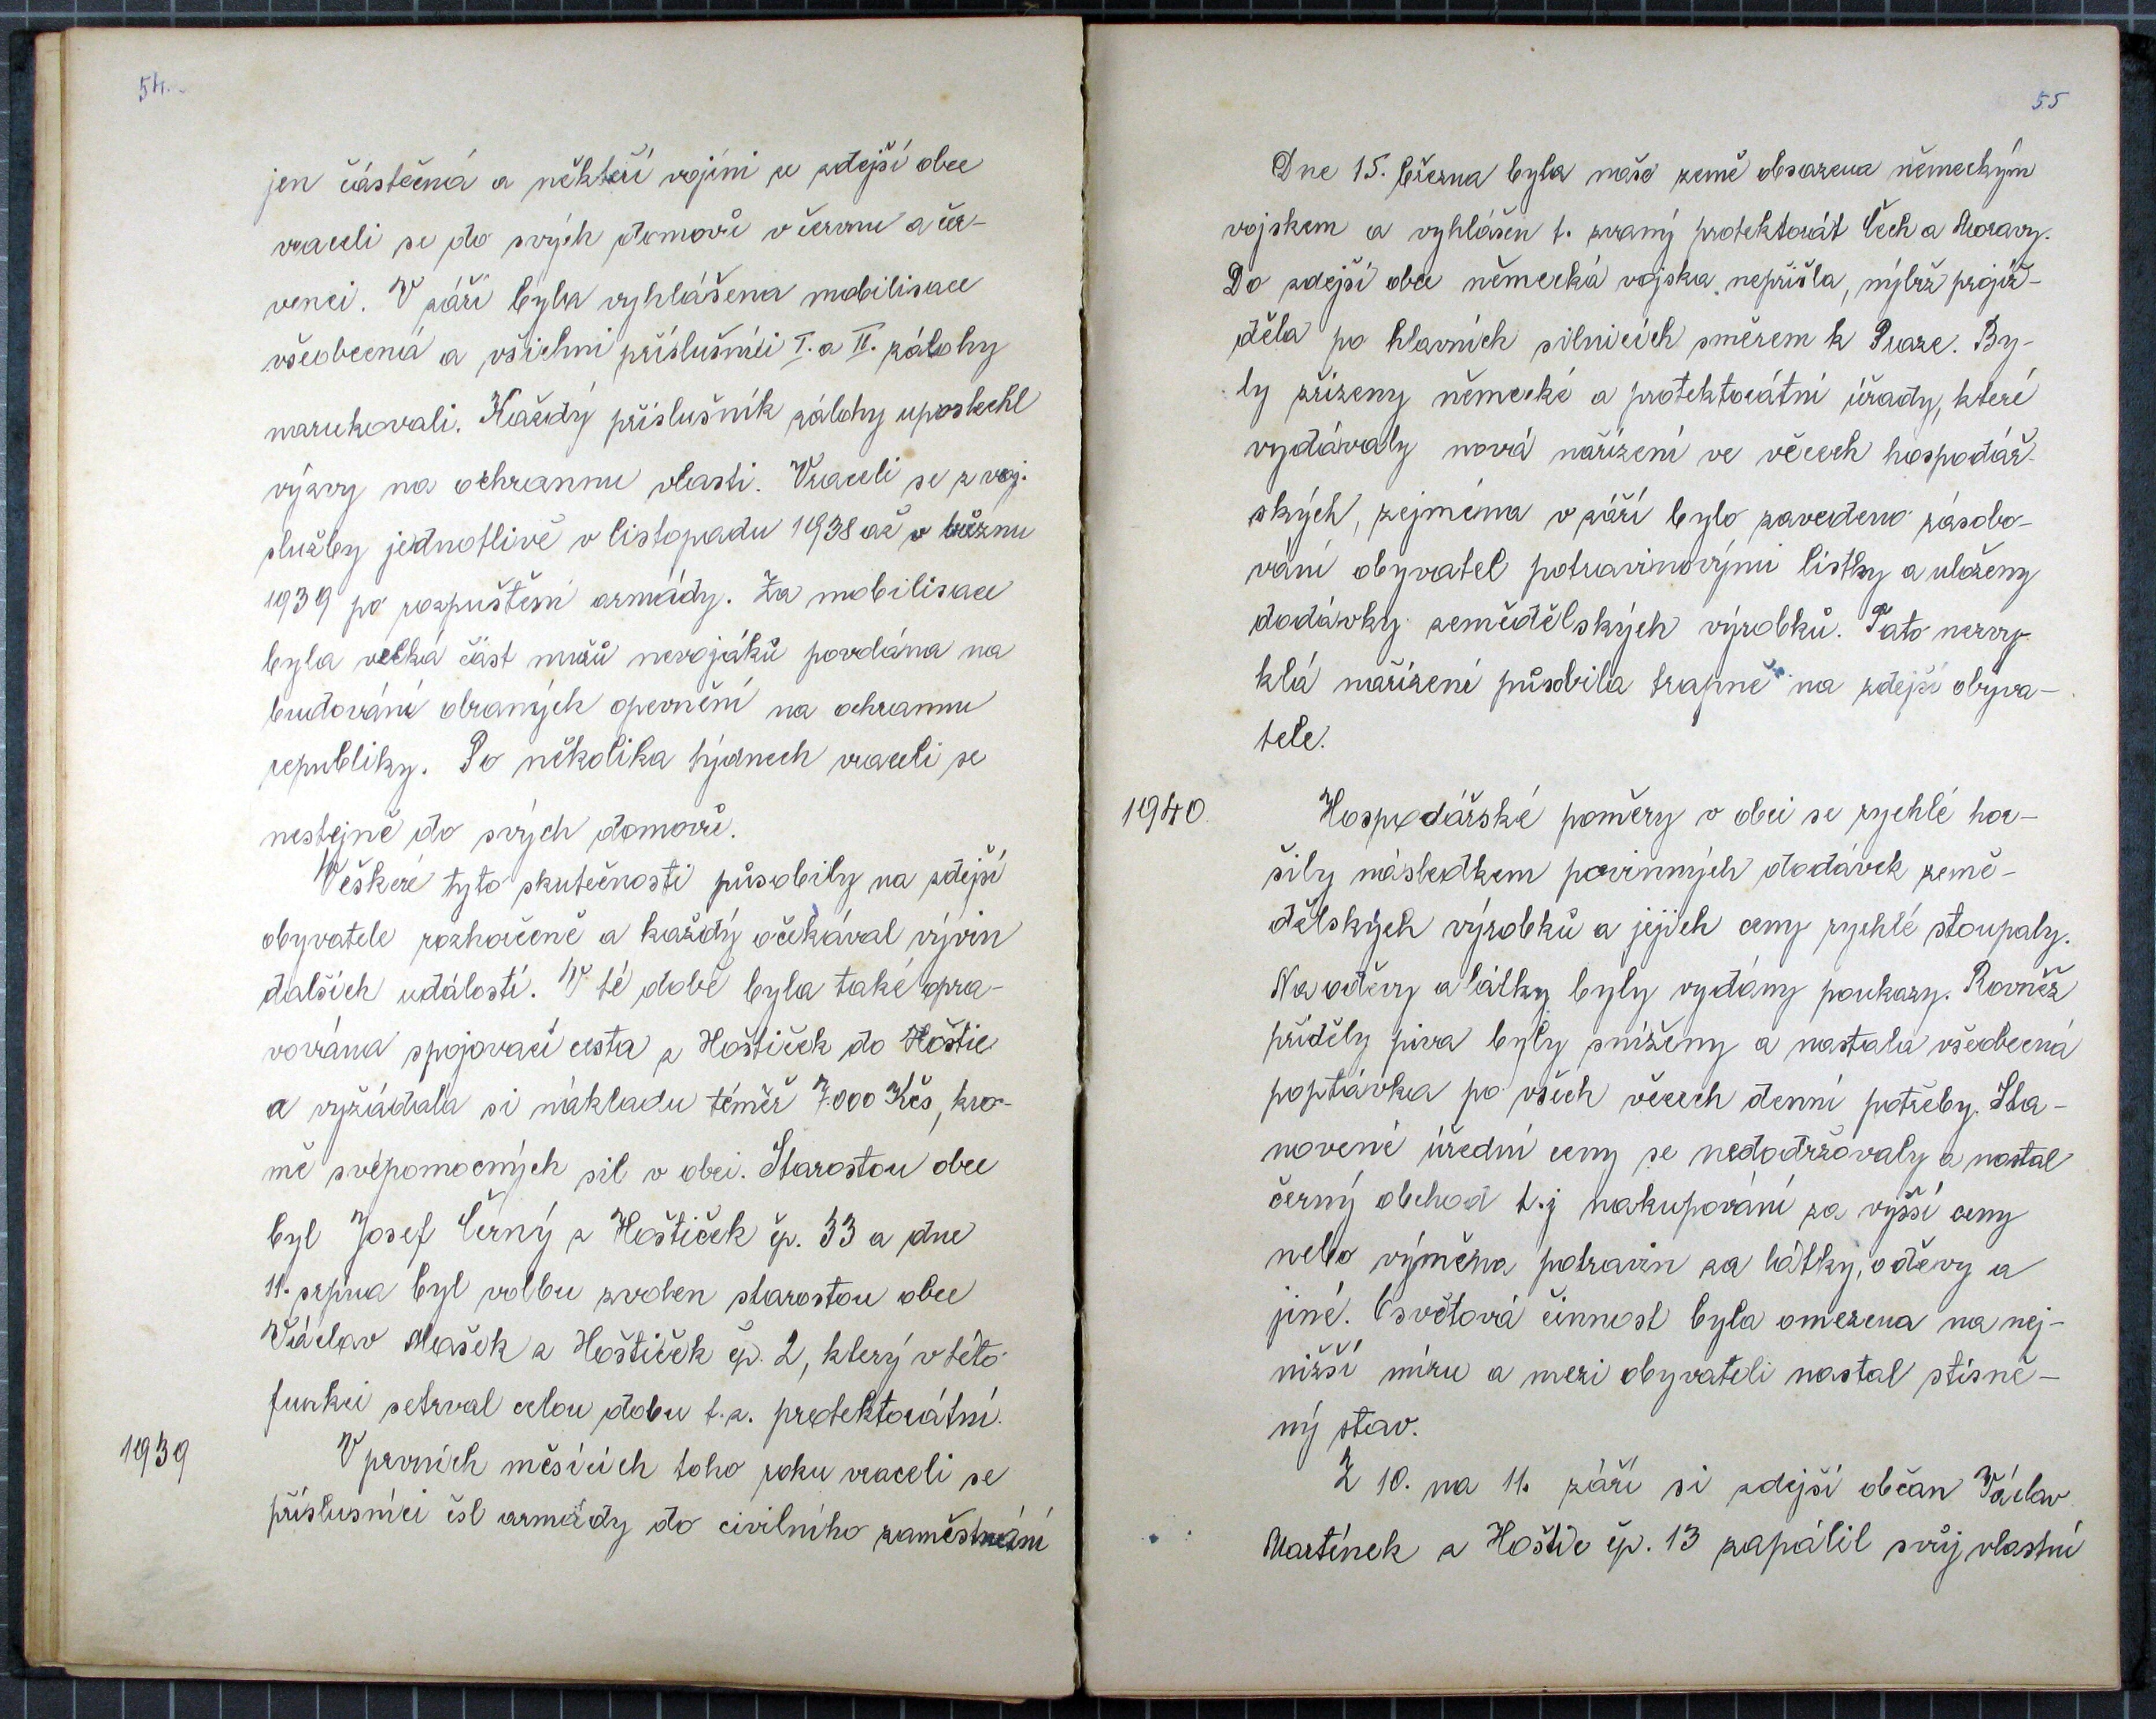 54.
jen částečná a někteří vojíni ze zdejší obce
vraceli se do svých domovů v červnu a čer-
venci. V září byla vyhlášena mobilisace
všeobecná a všichni příslušníci I. a II. zálohy
narukovali. Každý příslušník zálohy uposlechl
výzvy na ochrannu vlasti. Vraceli se z voj.
služby jednotlivě v listopadu 1938 až v březnu
1939 po rozpuštění armády. Za mobilisace
byla velká část mužů nevojáků povolána na
budování obraných opevnění na ochrannu
republiky. Po několika týdnech vraceli se
nestejně do svých domovů.
Veškeré tyto skutečnosti působily na zdejší
obyvatele rozhořčeně a každý očekával vývin
dalších událostí. V té době byla také opra-
vována spojovací cesta z Hoštiček do Hoštic
a vyžádala si nákladu téměř 7.000 Kčs, kro-
mě svépomocných sil v obci. Starostou obce
byl Josef Černý z Hoštiček čp. 33 a dne
11. srpna byl volbou zvolen starostou obce
Václav Mašek z Hoštiček čp. 2, který v této
funkci setrval celou dobu t.z. protektorátní.
1939
V prvních měsících toho roku vraceli se
příslusníci čsl armády do civilního zaměstnání
55
Dne 15. března byla naše země obsazena německým
vojskem a vyhlášen t. zvaný protektorát Čech a Moravy.
Do zdejší obce německá vojska nepřišla, nýbrž projíž-
děla po hlavních silnicích směrem k Praze. By-
ly zřízeny německé a protektorátní úřady, které
vydávaly nová nařízení ve věcech hospodář-
ských, zejména v září bylo zavedeno zásobo-
vání obyvatel potravinovými lístky a uloženy
dodávky zemědělských výrobků. Tato nezvy-
klá nařízení působila trapně na zdejší obyva-
tele.
1940.
Hospodářské poměry v obci se rychlé hor-
šily následkem povinných dodávek země-
dělských výrobků a jejich ceny rychlé stoupaly.
Na oděvy a látky byly vydány poukazy. Rovněž
příděly piva byly sníženy a nastala všeobecná
poptávka po všech věcech denní potřeby. Sta-
novené úřední ceny se nedodržovaly a nastal
černý obchod t.j nakupování za vyšší ceny
nebo výměna potravin za látky, oděvy a
jiné. Osvětová činnost byla omezena na nej-
nižší míru a mezi obyvateli nastal stísně-
ný stav.
Z 10. na 11. září si zdejší občan Václav
Martínek z Hoštic čp. 13 zapálil svůj vlastní